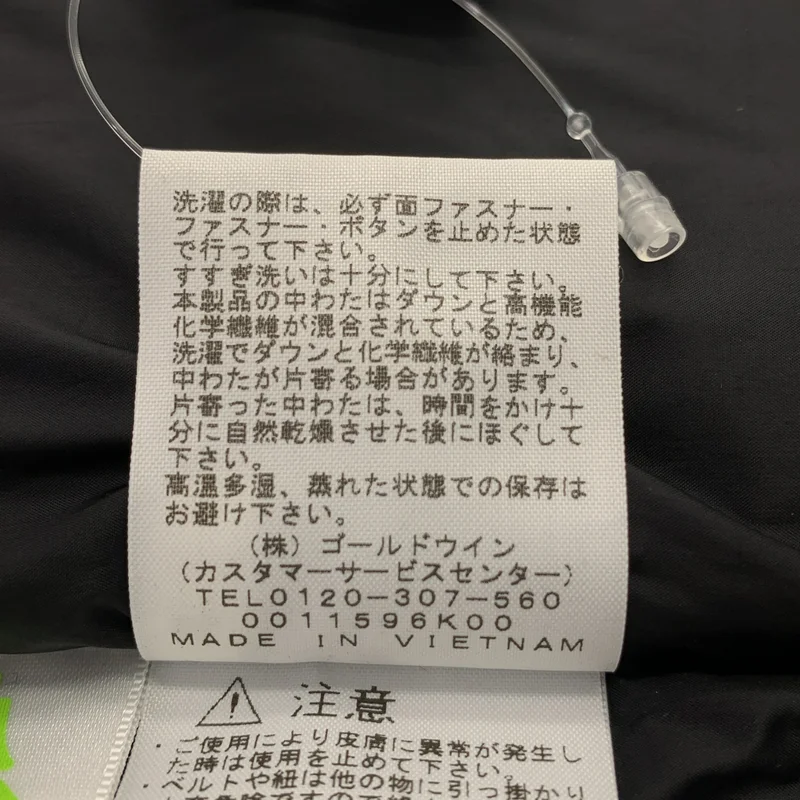 洗濯の際は、必ず面ファスナー・
ファスナー・ボタンを止めた状態
で行って下さい。
すすぎ洗いは十分にして下さい。
本製品の中わたはダウンと高機能
化学繊維が混合されているため、
洗濯でダウンと化学繊維が絡まり、
中わたが片寄る場合があります。
片寄った中わたは、時間をかけ十
分に自然乾燥させた後にほぐして
下さい。
高温多湿、蒸れた状態での保存は
お避け下さい。
(株)ゴールドウイン
(カスタマーサービスセンター)
TEL0120-307-560
0011596K00
MADE IN VIETNAM
注意
・ご使用により皮膚に異常が発生し
た時は使用を止めて下さい。
・ベルトや紐は他の物に引っ掛かり